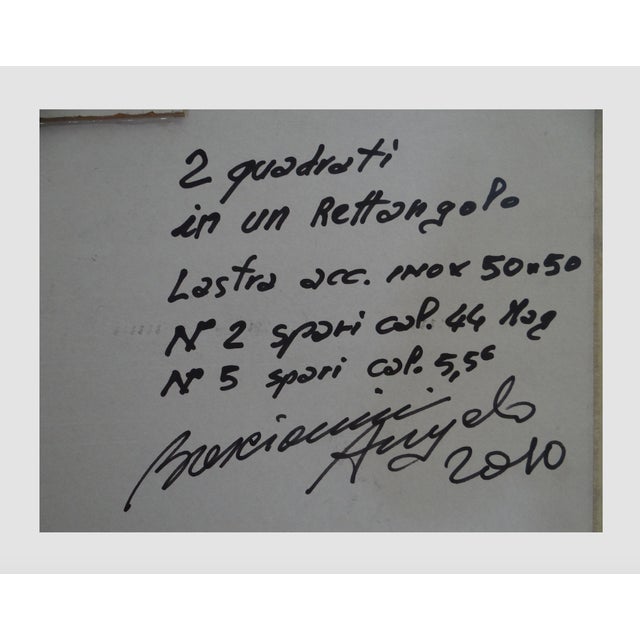 2 quadrati
in un Rettangolo
Lastra acc. inox 50x50
N° 2 spari cal. 44 Mag
N° 5 spari cal. 5,56
Angelo
2010